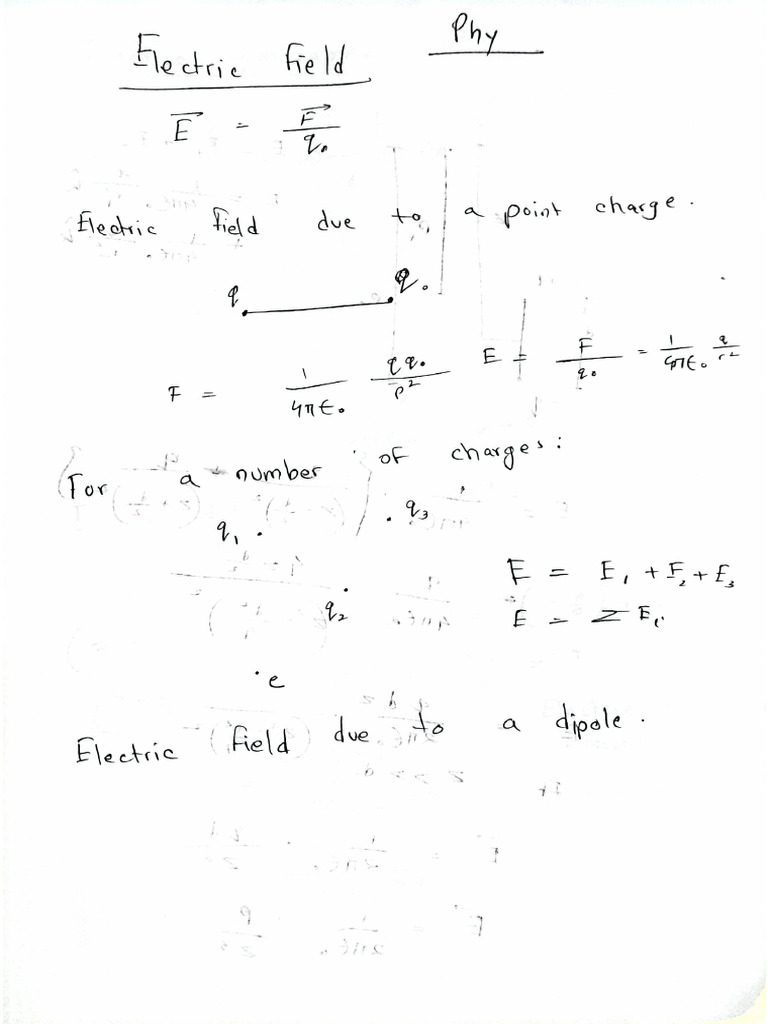 Phy
Electric Field
E⃗ = F⃗ / q₀
Electric field due to a point charge.
q q₀
F = 1/4πε₀ qq₀/r² E = F/q₀ = 1/4πε₀ q/r²
For a number of charges:
q₁ . . q₃
q₂
E = E₁ + E₂ + E₃
E = Σ Eᵢ
e
Electric field due to a dipole.